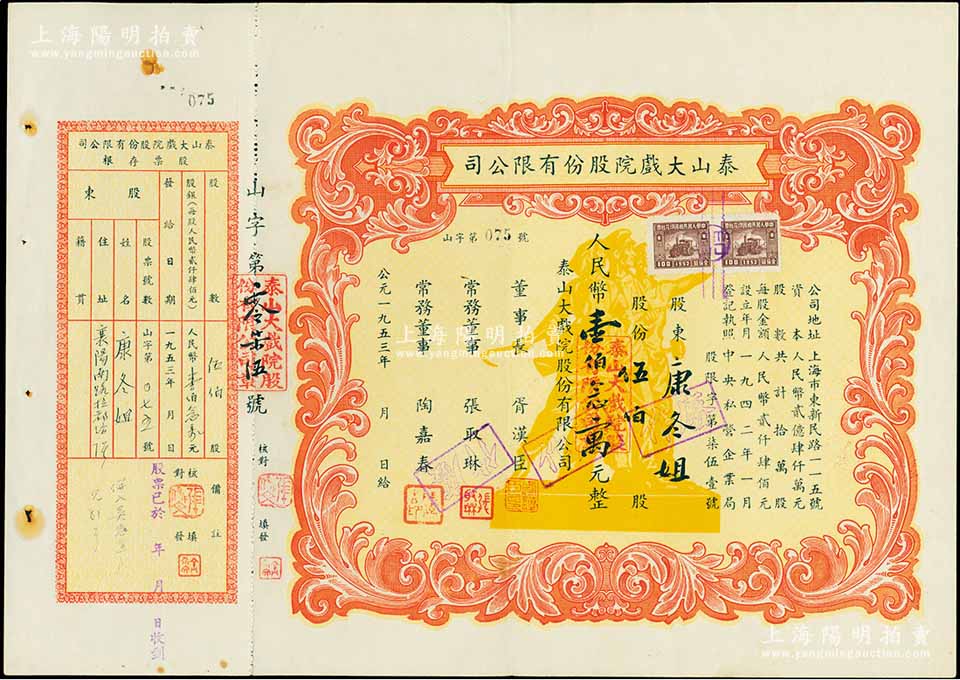 上海陽明拍賣
www.yangmingauction.com
075
泰山大戲院股份有限公司
山字第075號
公司地址 上海市東新民路一一五號
資本 人民幣貳億肆仟萬元
股數 共計拾萬股
每股金額 人民幣貳仟肆佰元
設立年月 一九四二年一月
登記執照 中央私營企業局
股限字第柒伍壹號
股東 康冬姐
股份 伍佰 股
人民幣壹佰念萬元整
泰山大戲院股份有限公司
董事長 胥漢臣
常務董事 張馭琳
常務董事 陶嘉春
公元一九五三年 月 日給
100 1952
100 1952
山字第零柒伍號
泰山大戲院股份有限公司
核對 填發
泰山大戲院股份有限公司
股票存根
股數 伍佰 股
股銀(每股人民幣貳仟肆佰元) 人民幣壹佰念萬元
發給日期 一九五三年 月 日
股東
股票號數 山字第0七五號
姓名 康冬姐
住址 襄陽南路
籍貫
備註
核對 填發
股票已於 年 月 日收到
上海陽明拍賣
www.yangmingauction.com
上海陽明拍賣
www.yangmingauction.com